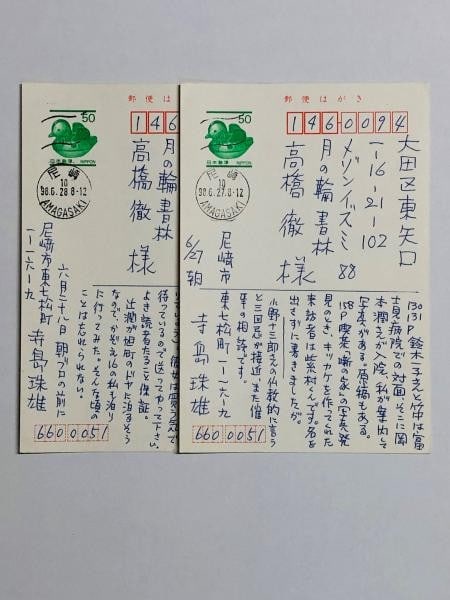 郵便は
50
日本郵便 NIPPON
尼崎
10
98.6.28.8-12
AMAGASAKI
146
月の輪書林
高橋徹様
尼崎市東七松町
一-一六-九
寺島珠雄
六月二十八日 朝プロの前に
待っているので送ってやって下さい。
よき読者たること保証。
辻潤が旭町のドヤに泊るそう
なので、かぞえ16の私も泊り
に行ってみた。そんな頃の
ことは忘れられない。
6600051
郵便はがき
50
日本郵便 NIPPON
尼崎
10
98.6.27.8-12
AMAGASAKI
1460094
大田区東矢口
一-16-21-102
メゾンイズミ88
月の輪書林
高橋徹様
6/27朝
尼崎市
東七松町一-一六-九
寺島珠雄
130
131P 鈴木一子さんと竹中は富
士見病院での対面、そこに岡
本潤さんが入院、私が案内して
写真がある。原稿もある。
158P 喫茶・噛の家の写真発
見のとき、キッカケを作ってくれた
来訪者は柴村くんです。名を
出さずに書きましたが。
小野十三郎さんの仏教的に言う
と三回忌が接近、また催
事の相談です。
6600051